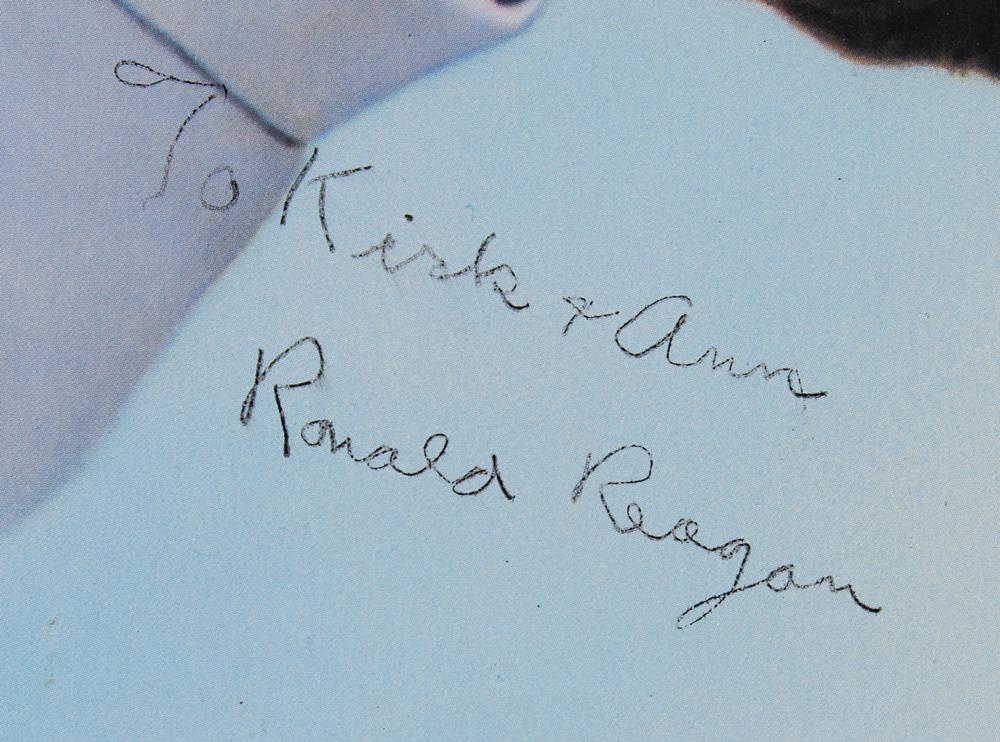 To Kirk & Ann
Ronald Reagan